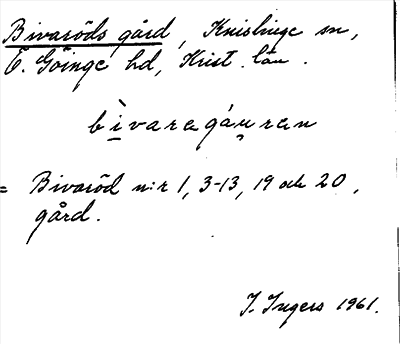 Bivaröds gård, Knislinge sn,
Ö. Göinge hd, Krist. län.
bìvaragáuren
= Bivaröd n:r 1, 3-13, 19 och 20,
gård.
I. Ingers 1961.